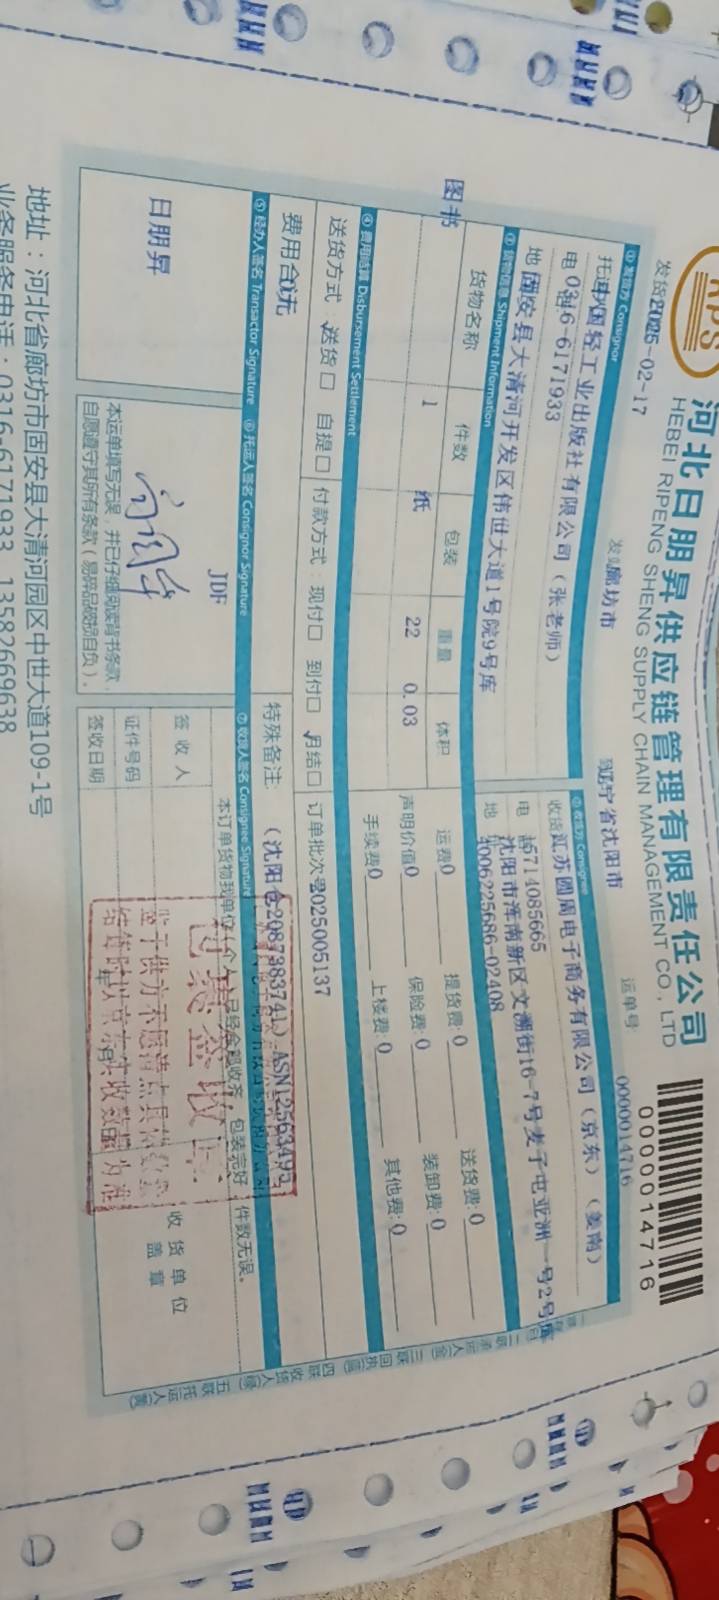 河北日朋昇供应链管理有限责任公司
HEBEI RIPENG SHENG SUPPLY CHAIN MANAGEMENT CO., LTD
0000014716
发货 2025-02-17
廊坊市
辽宁省沈阳市
运单号
0000014716
① 发货方 Consignor
中国轻工业出版社有限公司（张老师）
电 0316-6171933
地 固安县大清河开发区伟世大道1号院9号库
② 收货方 Consignee
收货 江苏圆周电子商务有限公司（京东）（姜南）
电 15714085665
沈阳市浑南新区文溯街16-7号麦子屯亚洲一号2号库
地 4006225686-02408
③ 货物信息 Shipment Information
货物名称 件数 包装 重量 体积
图书 1 纸 22 0.03
运费 0 提货费: 0 送货费: 0
声明价值 0 保险费: 0 装卸费: 0
手续费 0 上楼费: 0 其他费: 0
④ 费用结算 Disbursement Settlement
送货方式：送货□ 自提□ 付款方式：现付□ 到付□ 月结□ 订单批次号 2025005137
费用合计 元
特殊备注: （沈阳仓2087383741）ASN12563493
⑤ 经办人签名 Transactor Signature ⑥ 托运人签名 Consignor Signature ⑦ 收货人签名 Consignee Signature
日朋昇
JDF
本运单填写无误，并已仔细阅读背书条款，
自愿遵守其所有条款（易碎品破损自负）。
本订单货物我单位（个人）已经全部收齐，包装完好，件数无误。
签收人
证件号码
签收日期
收货单位
盖章
地址：河北省廊坊市固安县大清河园区中世大道109-1号
业务服务电话：0316-6171933 13582669638